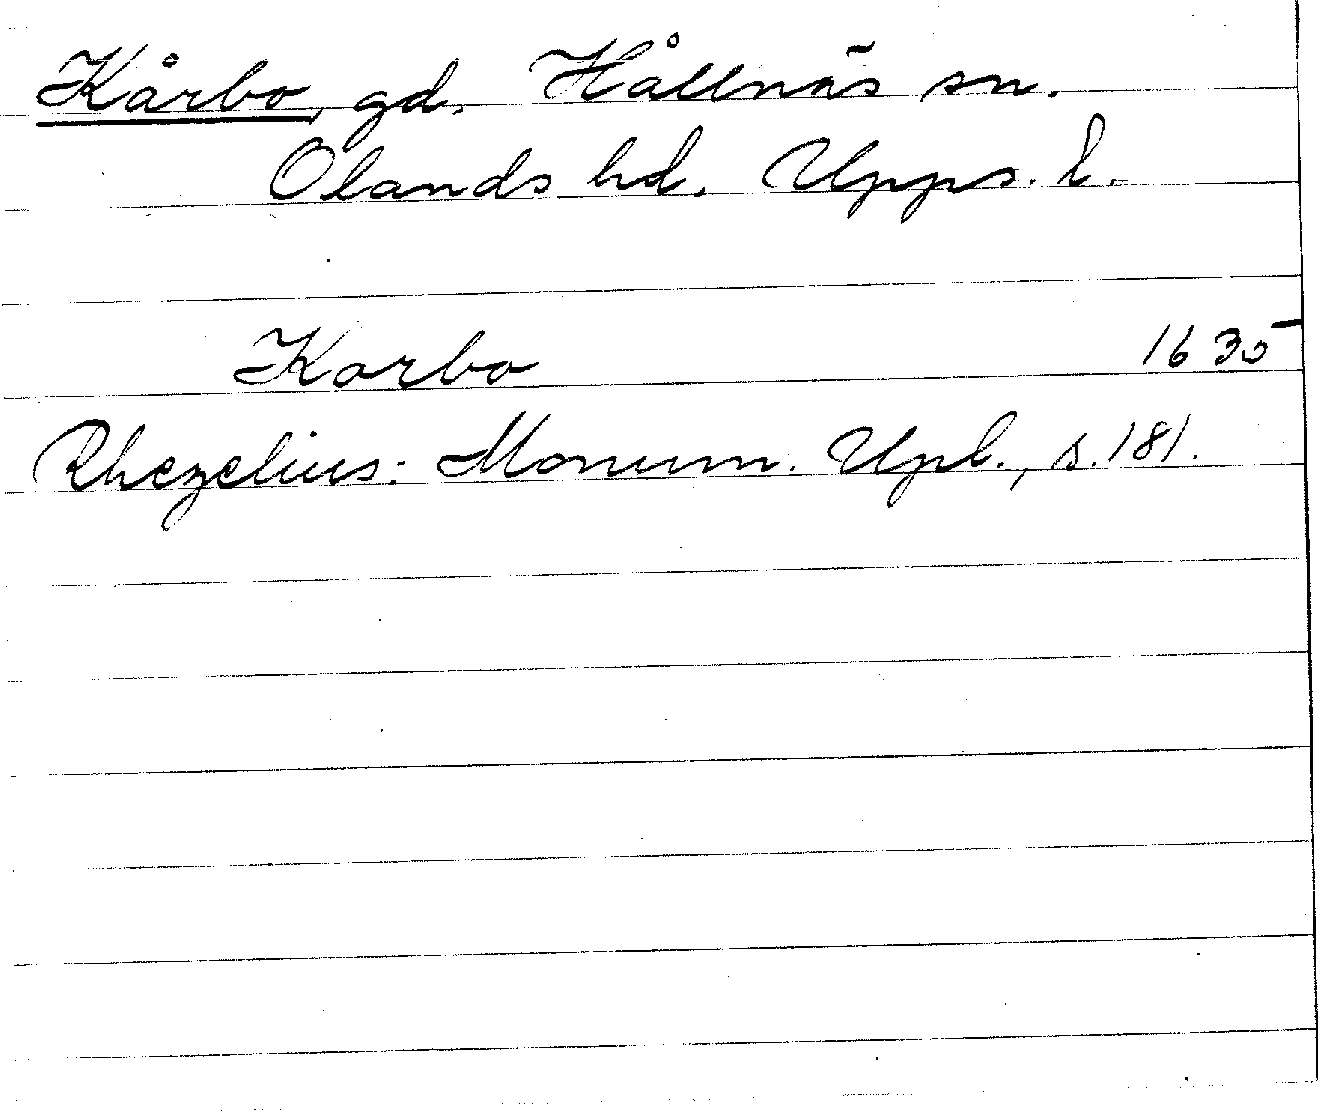 Kårbo, gd. Hållnäs sn.
Olands hd. Upps. l.
Korbo 1635
Rhezelius: Monum. Upl., s. 181.